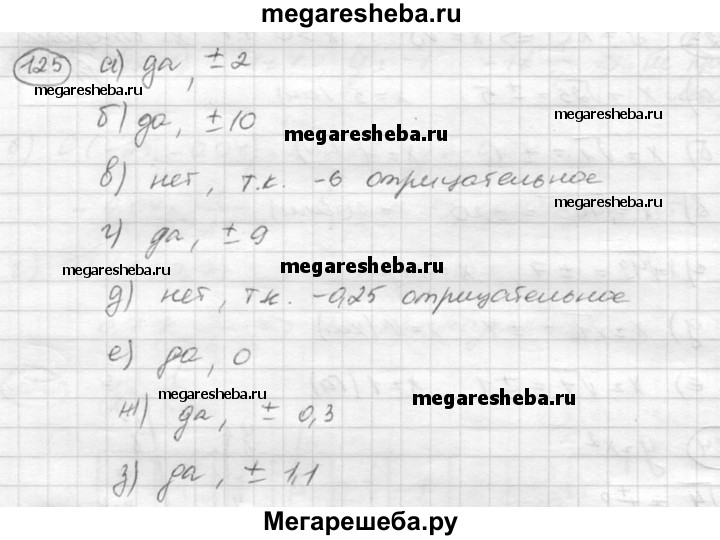 megaresheba.ru
125 а) да, ± 2
megaresheba.ru
б) да, ± 10
megaresheba.ru
megaresheba.ru
в) нет, т.к. -6 отрицательное
megaresheba.ru
г) да, ± 9
megaresheba.ru
megaresheba.ru
д) нет, т.к. -0,25 отрицательное
е) да, 0
megaresheba.ru
megaresheba.ru
ж) да, ± 0,3
з) да, ± 1,1
Мегарешеба.ру